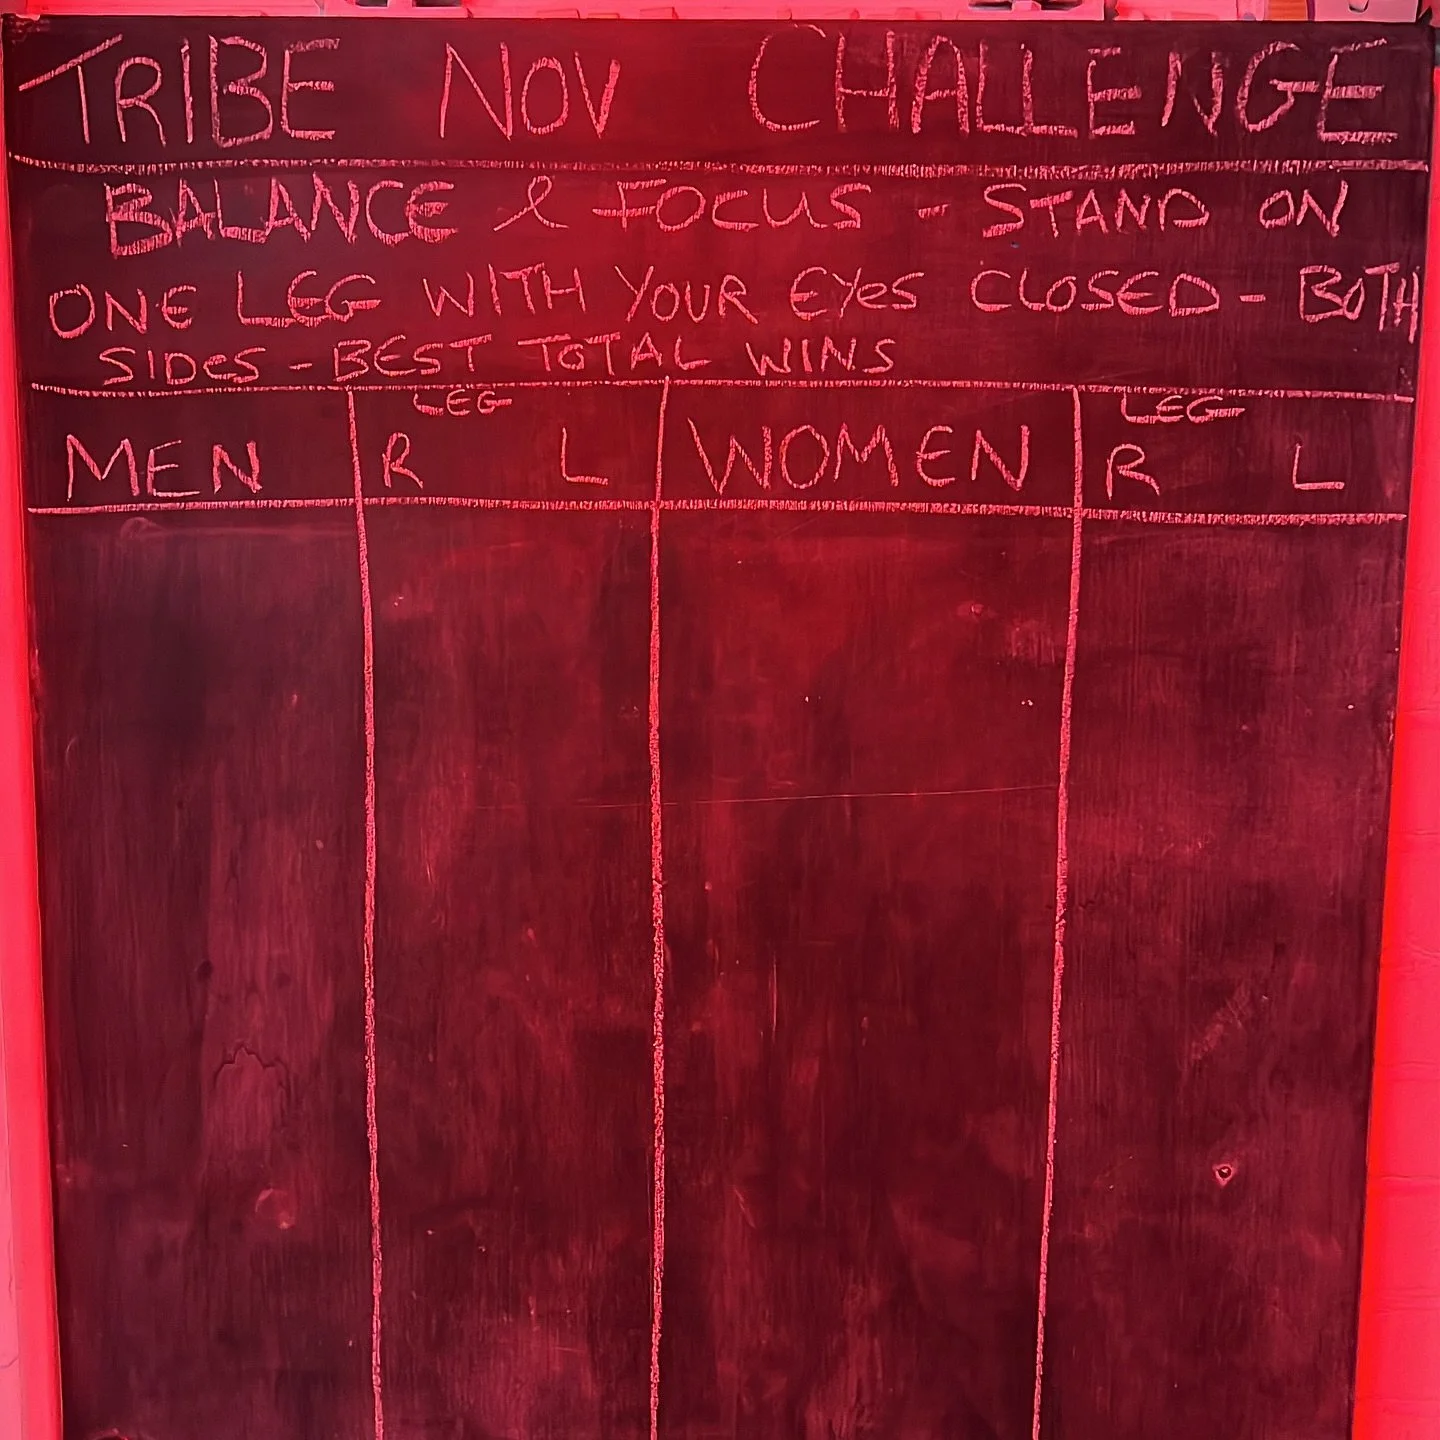 TRIBE NOV CHALLENGE
BALANCE & FOCUS - STAND ON
ONE LEG WITH YOUR EYes CLOSED - BOTH
SIDes - BEST TOTAL WINS
MEN
LEG
R L
WOMEN
LEG
R L